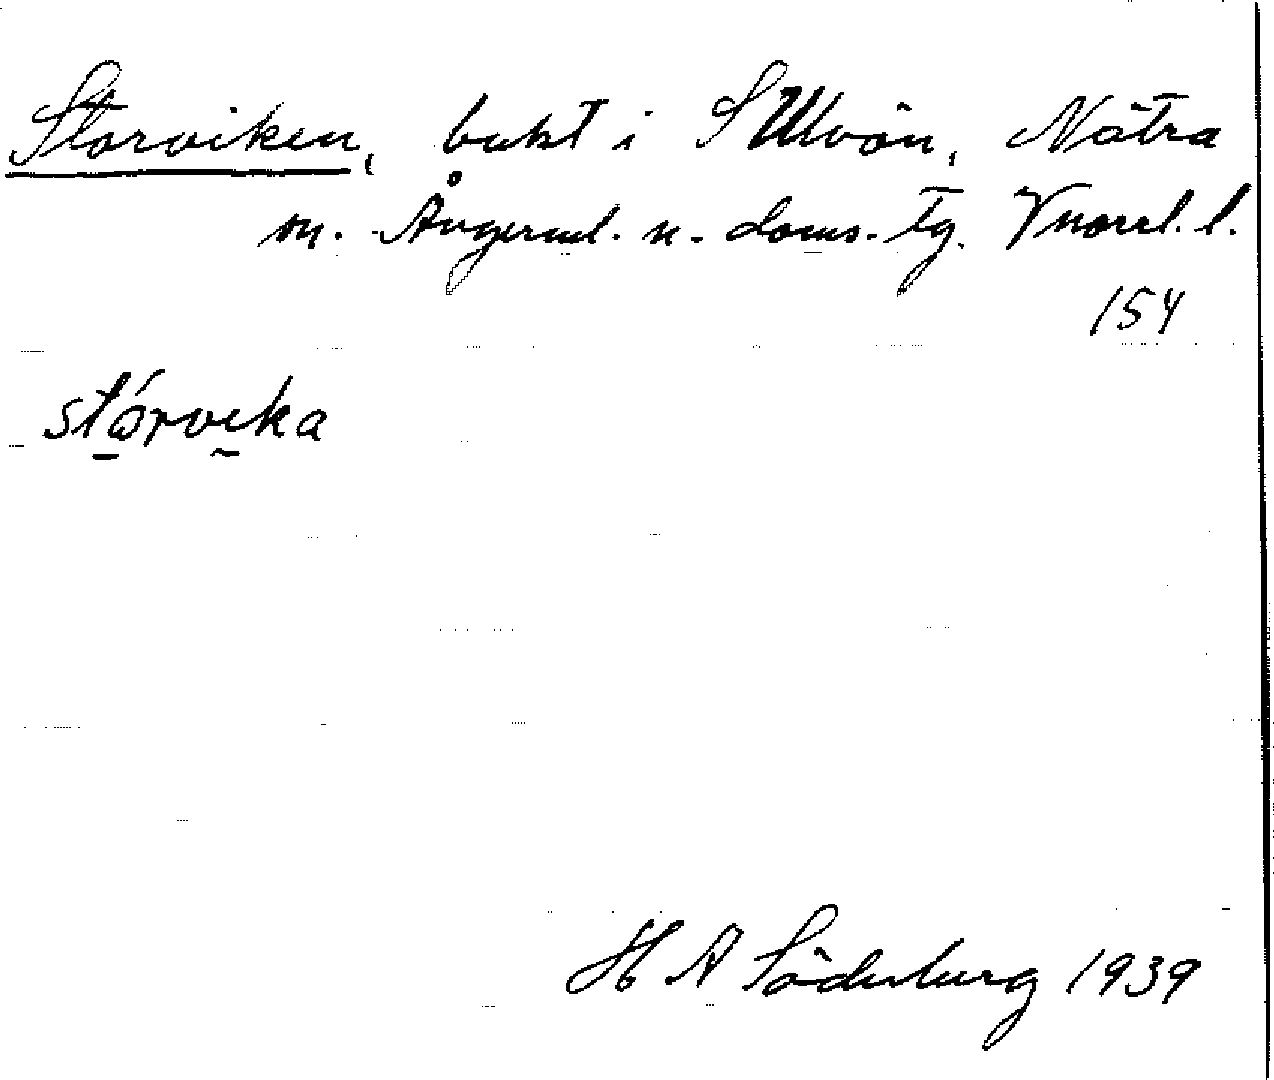 Storviken, bukt i S Ulvön, Nätra
sn. Ångerml. n. doms. tg. Vnorrl. l.
154
stórveka
H A Söderberg 1939